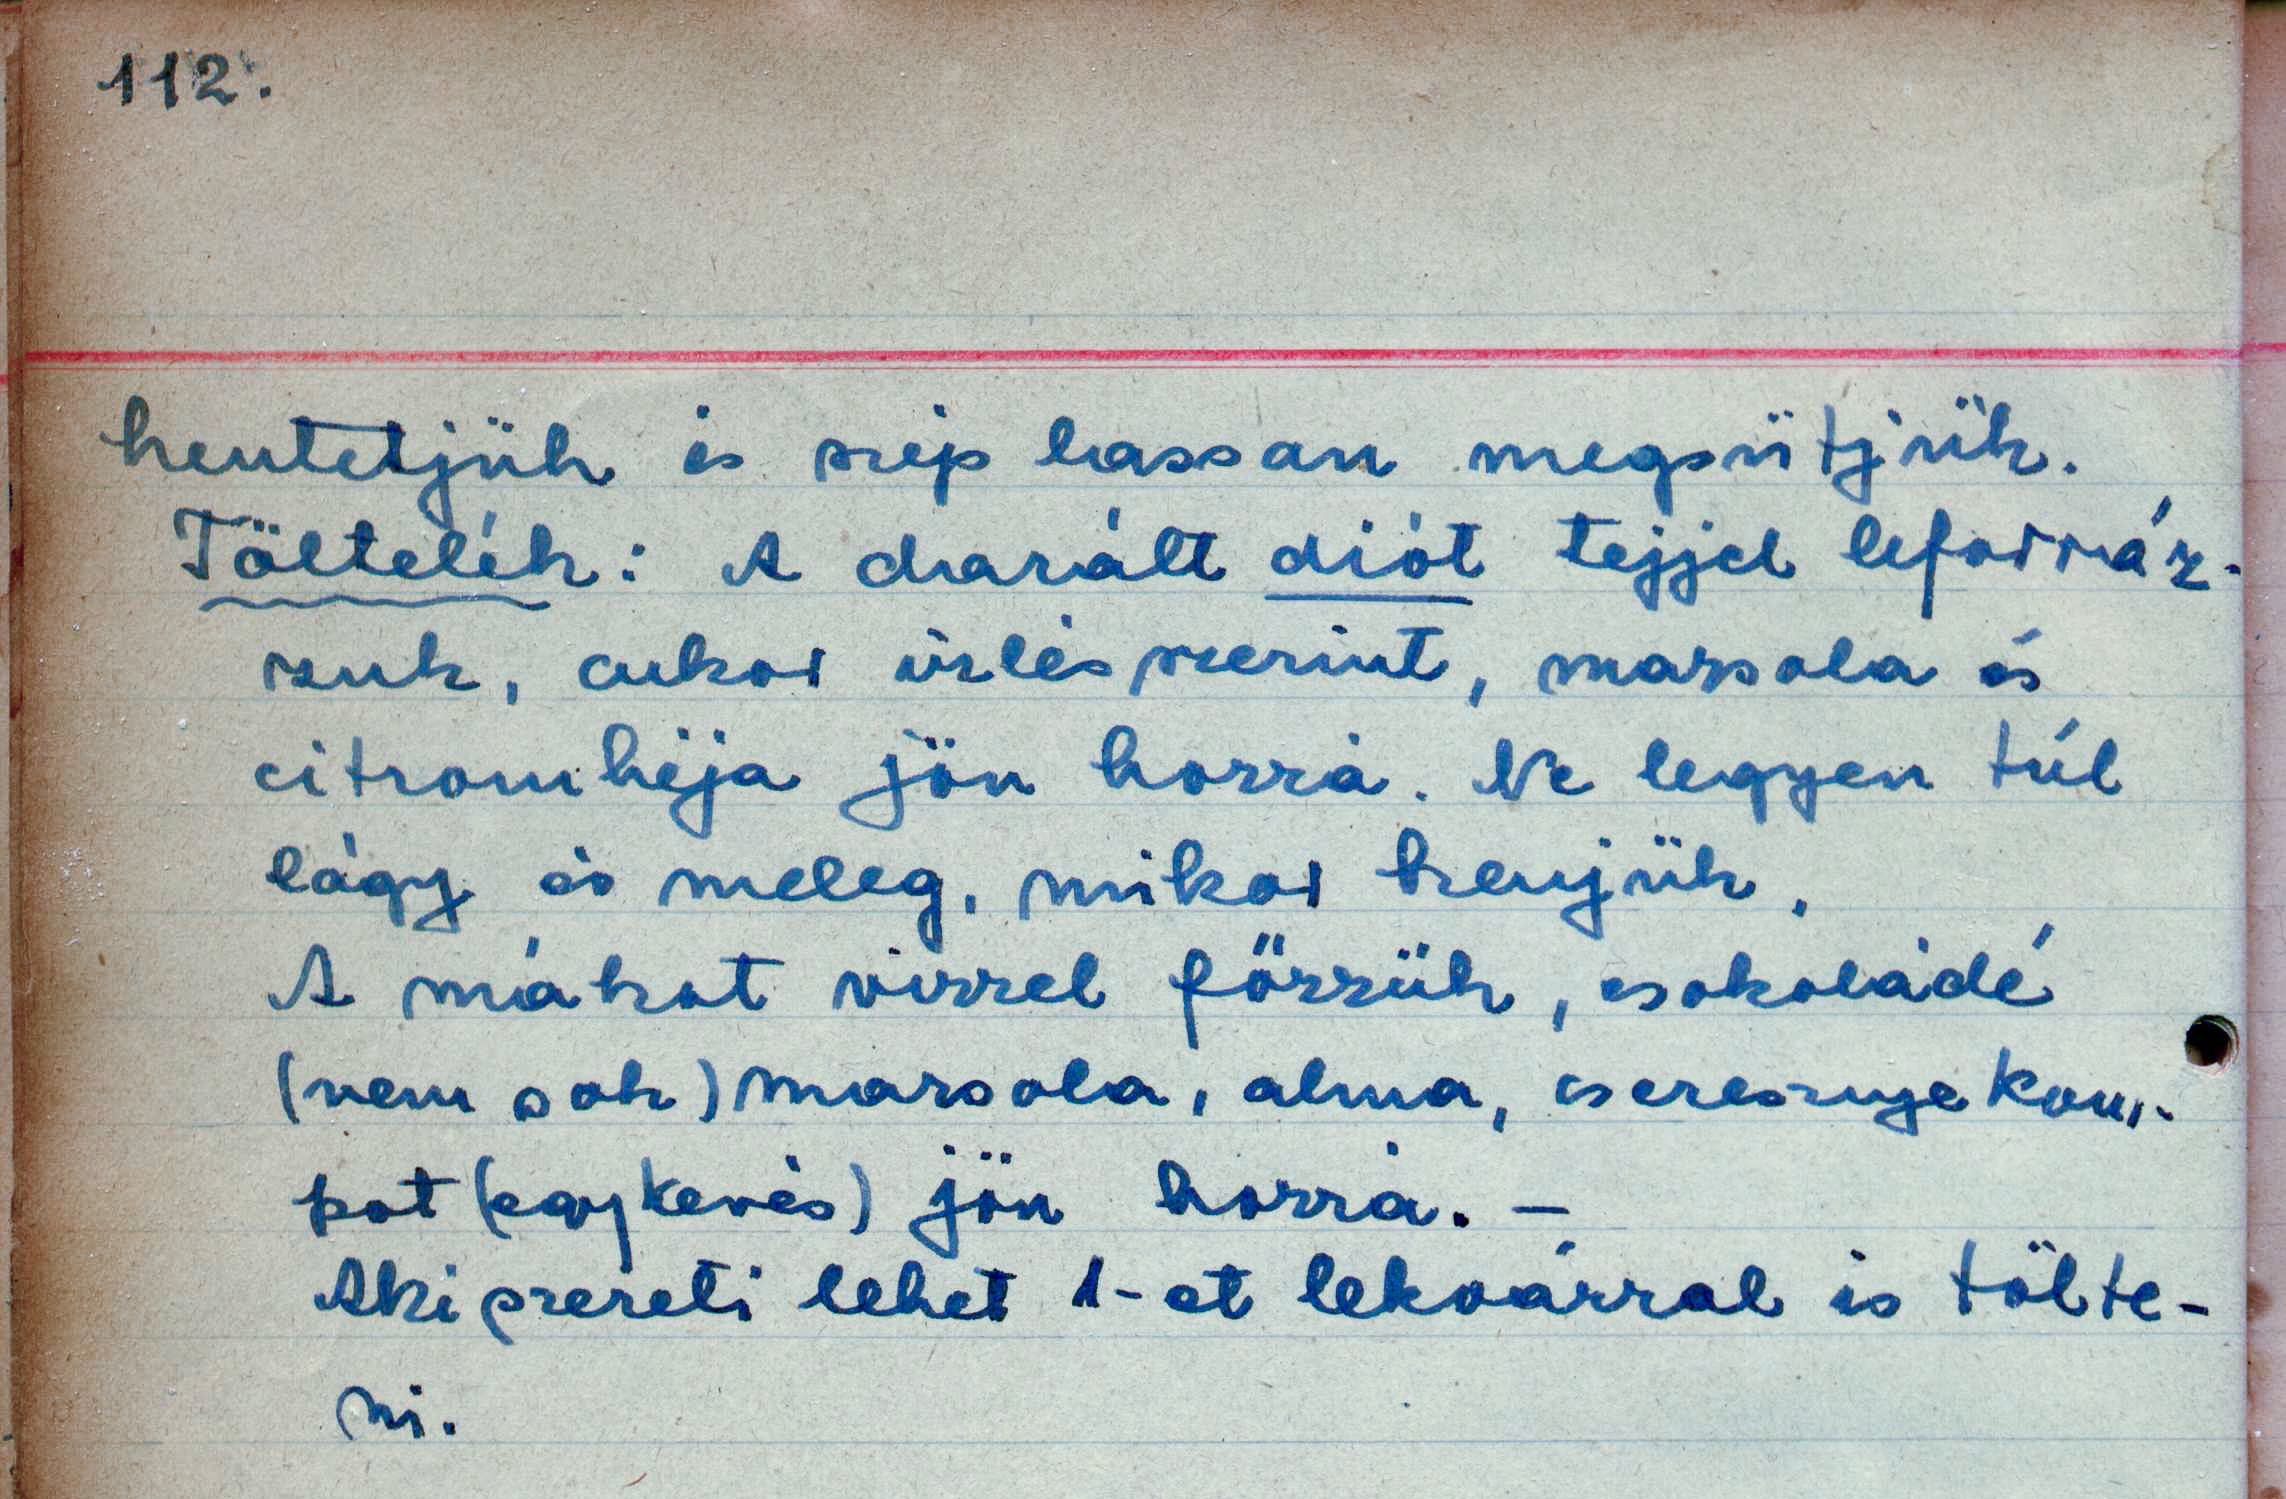 112.
kentetjük és szép lassan megsütjük.
Töltelék: A darált diót tejjel leforráz-
zuk, cukor ízlés szerint, mazsola és
citromhéja jön hozzá. Ne legyen túl
lágy és meleg, mikor kenjük.
A mákot vízzel főzzük, csokoládé
(nem sok) mazsola, alma, cseresznyekom-
pot (egykevés) jön hozzá. –
Aki szereti lehet 1-et lekvárral is tölte-
ni.